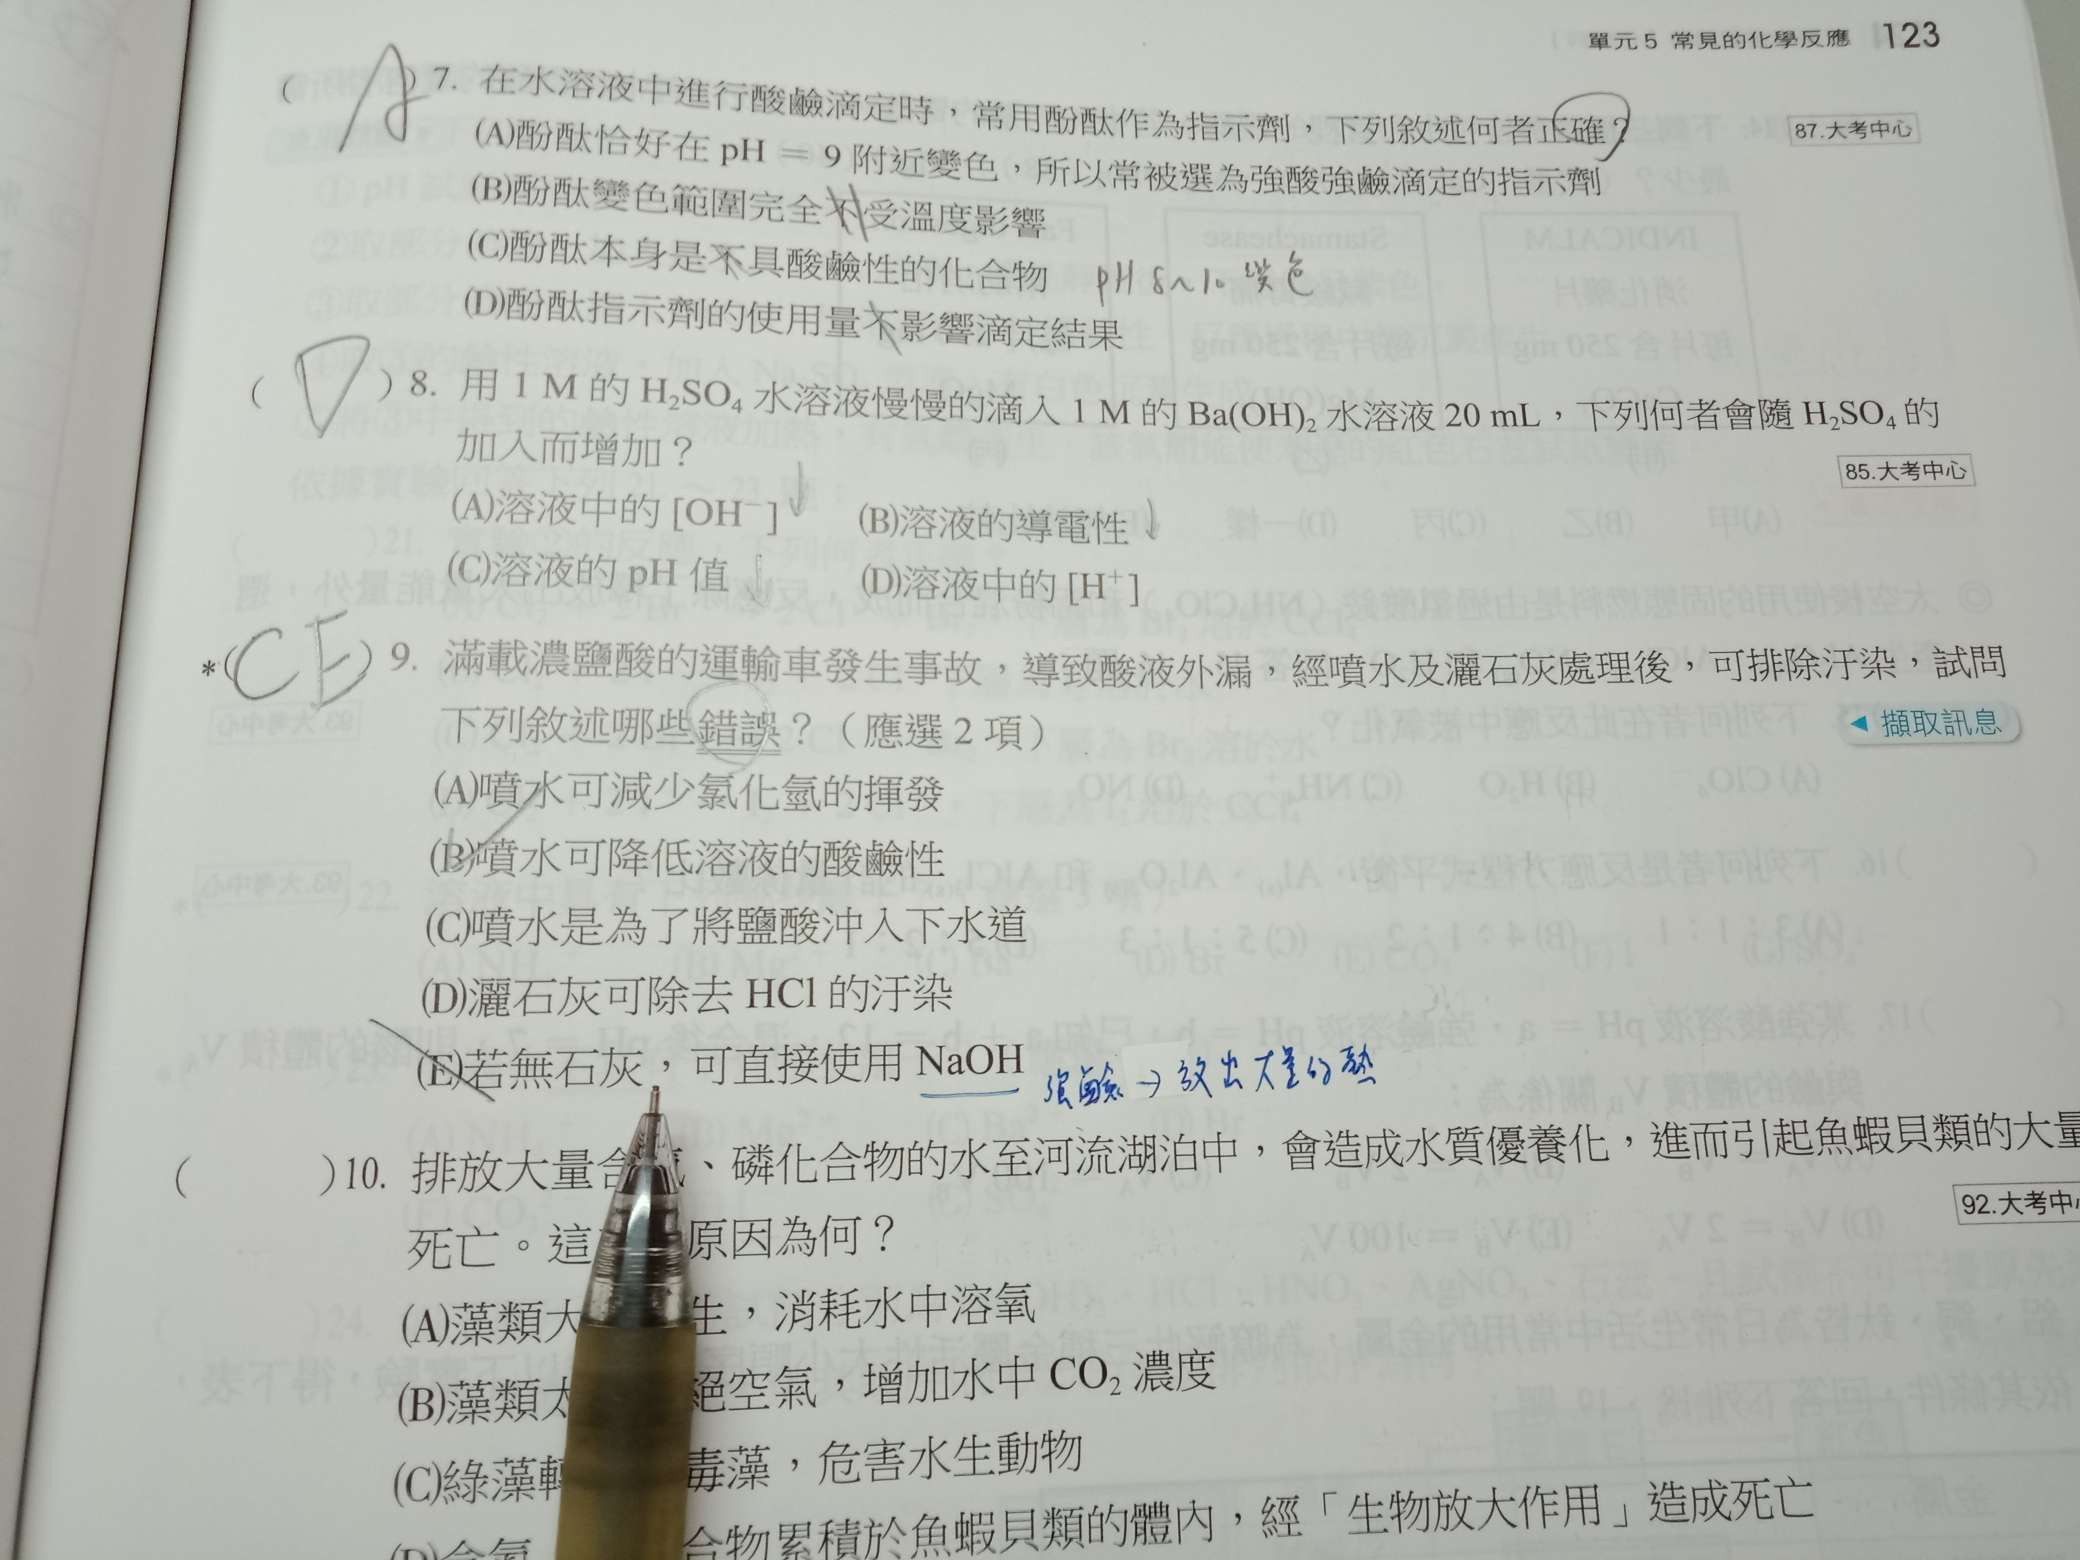 單元 5 常見的化學反應 123
( A ) 7. 在水溶液中進行酸鹼滴定時，常用酚酞作為指示劑，下列敘述何者正確？ 87.大考中心
(A)酚酞恰好在 pH = 9 附近變色，所以常被選為強酸強鹼滴定的指示劑
(B)酚酞變色範圍完全不受溫度影響
(C)酚酞本身是不具酸鹼性的化合物 pH 8~10 變色
(D)酚酞指示劑的使用量不影響滴定結果
( D ) 8. 用 1 M 的 H₂SO₄ 水溶液慢慢的滴入 1 M 的 Ba(OH)₂ 水溶液 20 mL，下列何者會隨 H₂SO₄ 的
加入而增加？ 85.大考中心
(A)溶液中的 [OH⁻] ↓ (B)溶液的導電性 ↓
(C)溶液的 pH 值 ↓ (D)溶液中的 [H⁺]
*( CE ) 9. 滿載濃鹽酸的運輸車發生事故，導致酸液外漏，經噴水及灑石灰處理後，可排除汙染，試問
下列敘述哪些錯誤？（應選 2 項） ◀ 擷取訊息
(A)噴水可減少氯化氫的揮發
(B)噴水可降低溶液的酸鹼性
(C)噴水是為了將鹽酸沖入下水道
(D)灑石灰可除去 HCl 的汙染
(E)若無石灰，可直接使用 NaOH 強鹼→放出大量的熱
( ) 10. 排放大量含、磷化合物的水至河流湖泊中，會造成水質優養化，進而引起魚蝦貝類的大量
死亡。這原因為何？ 92.大考中
(A)藻類大生，消耗水中溶氧
(B)藻類絕空氣，增加水中 CO₂ 濃度
(C)綠藻毒藻，危害水生動物
合物累積於魚蝦貝類的體內，經「生物放大作用」造成死亡